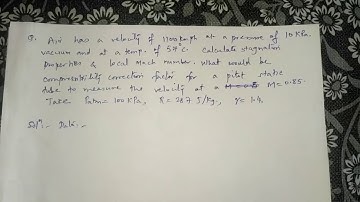 Q. Air has a velocity of 1100 Kmph at a pressure of 10 KPa.
vacuum and at a temp. of 57°c. Calculate stagnation
properties & local mach number. What would be
compressibility correction factor for a pitot static
tube to measure the velocity at a M=0.85.
Take Patm = 100 KPa, R = 287 J/Kg, γ = 1.4.
Solⁿ:- Data:-